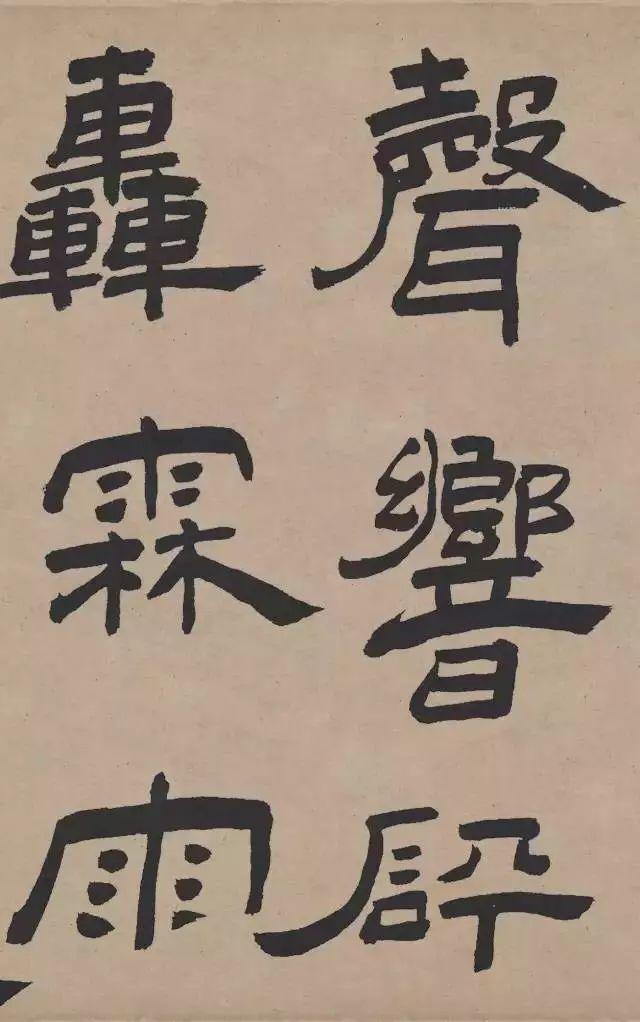 聲響
轟霖雨